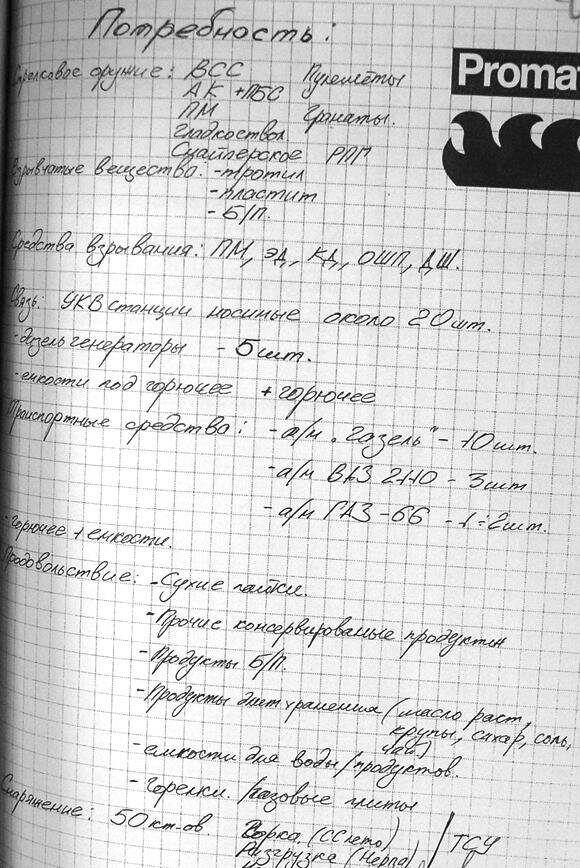 Потребность:
Promat
Стрелковое оружие: ВСС Пулемёты
АК +ПБС
ПМ Гранаты.
гладкоствол
Снайперское РПГ
Взрывчатые вещества: -тротил
-пластит
-Б/П.
Средства взрывания: ПМ, ЭД, КД, ОШП, ДШ.
Связь: УКВ станции носимые около 20 шт.
-дизельгенераторы - 5 шт.
-емкости под горючее + горючее
Транспортные средства: -а/м "Газель" - 10 шт.
-а/м ВАЗ 2110 - 3 шт
-а/м ГАЗ-66 - 1÷2 шт.
-горючее + емкости.
Продовольствие: -Сухие пайки.
-Прочие консервированые продукты
-Продукты Б/П.
-Продукты длит хранения (масло раст,
крупы, сахар, соль,
чай.)
-емкости для воды/продуктов.
-Горелки. Газовые плиты
Снаряжение: 50 кт-ов Горка (СС лето)
Разгрузка (Нерпа)